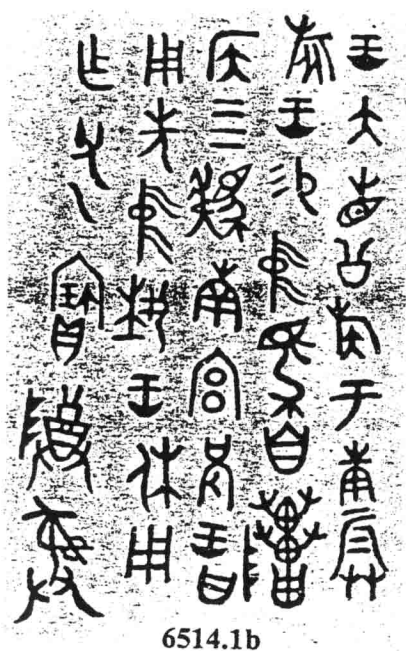 王大省公族于庚振
旅王易中馬自
侯四南宮兄王曰
用先中埶王休用
乍父乙寶尊彝
6514.1b